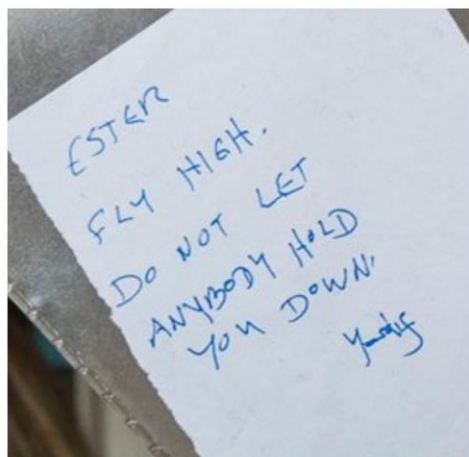 ESTER
FLY HIGH.
DO NOT LET
ANYBODY HOLD
YOU DOWN.